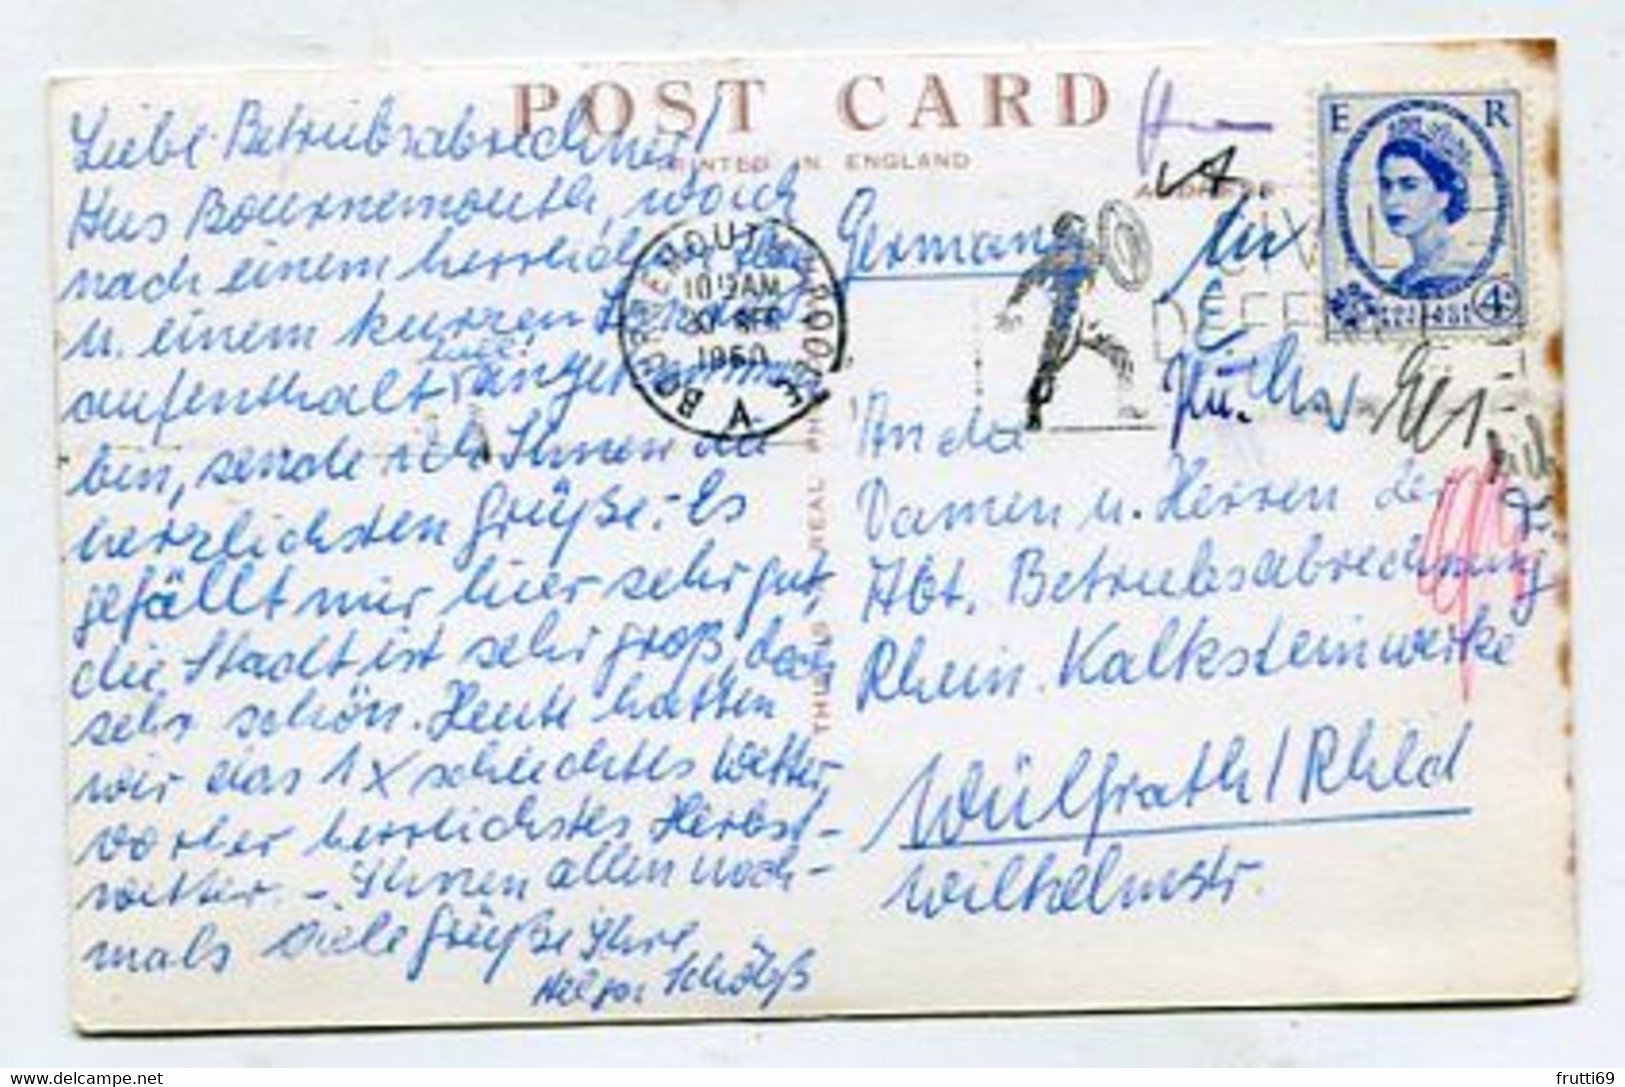 POST CARD
PRINTED IN ENGLAND
ADDRESS
Liebe Betriebsabrechner!
Aus Bournemouth, wo ich
nach einem herrlichen Flug
u. einem kurzen London-
aufenthalt länger
bin, sende ich Ihnen die
herzlichsten Grüße.- Es
gefällt mir hier sehr gut,
die Stadt ist sehr groß, doch
sehr schön. Heute hatten
wir das 1x schlechtes Wetter,
vorher herrlichstes Herbst-
wetter. - Ihnen allen noch-
mals viele Grüße Ihre
Helga
THIS IS REAL PH
BOURNEMOUTH POOLE
10 15 AM
SEP
1960
V
CIVIL
DEFENCE
E R
4D
Germany
An die
Damen u. Herren der
Abt. Betriebsabrechnung
Rhein. Kalksteinwerke
Wülfrath/Rhld
Wilhelmstr.
frutti69